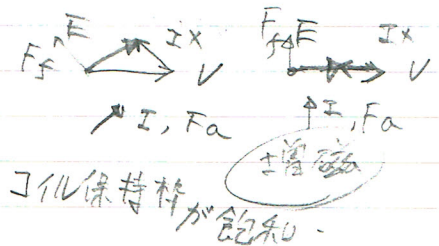 E IX
Ff V
I, Fa
Ff E IX
V
I, Fa
増磁
コイル保持枠が飽和.